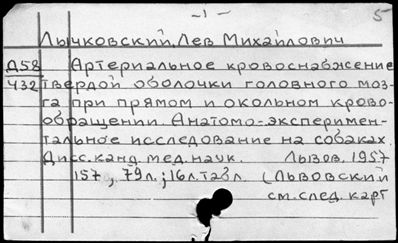 -1- 5
Лычковский, Лев Михайлович
Д58 Артериальное кровоснабжение
432 твердой оболочки головного моз-
га при прямом и окольном крово-
обращении. Анатомо-эксперимен-
тальное исследование на собаках.
Дисс. канд. мед. наук. Львов. 1957
157, 79л.; 16л. табл. (Львовский
см. след. карт